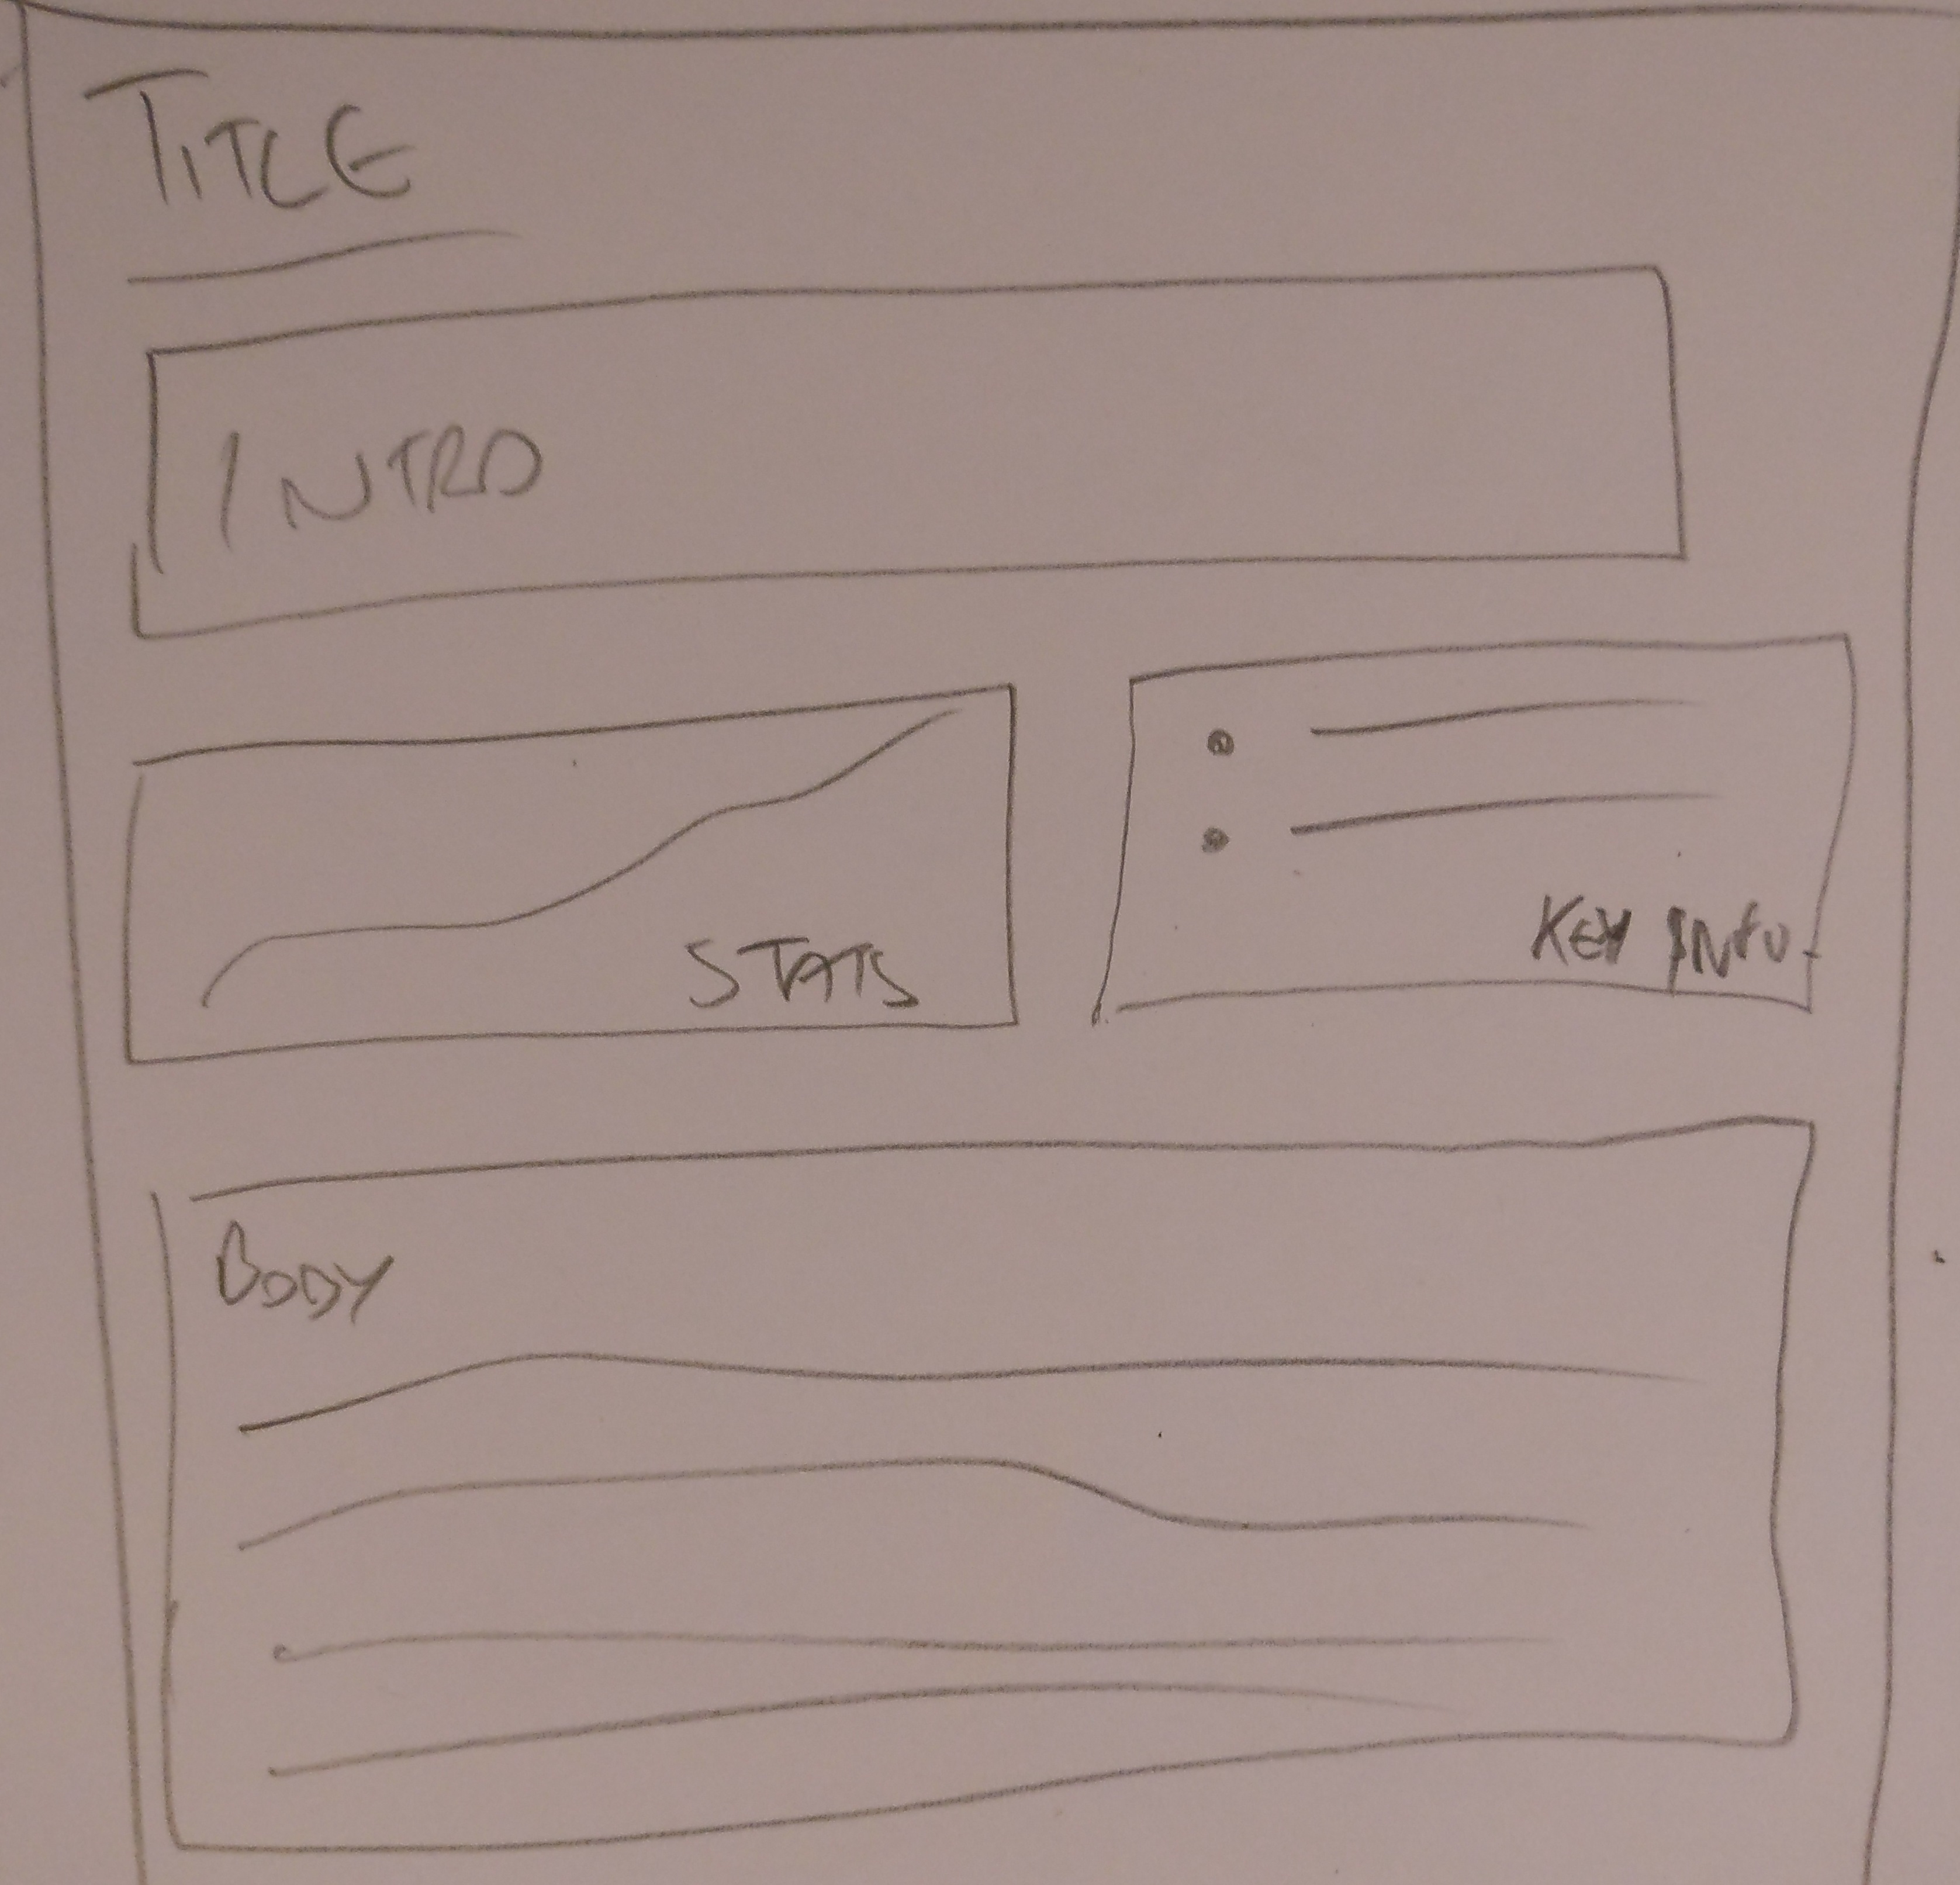 TITLE
INTRO
STATS
KEY INFO
BODY